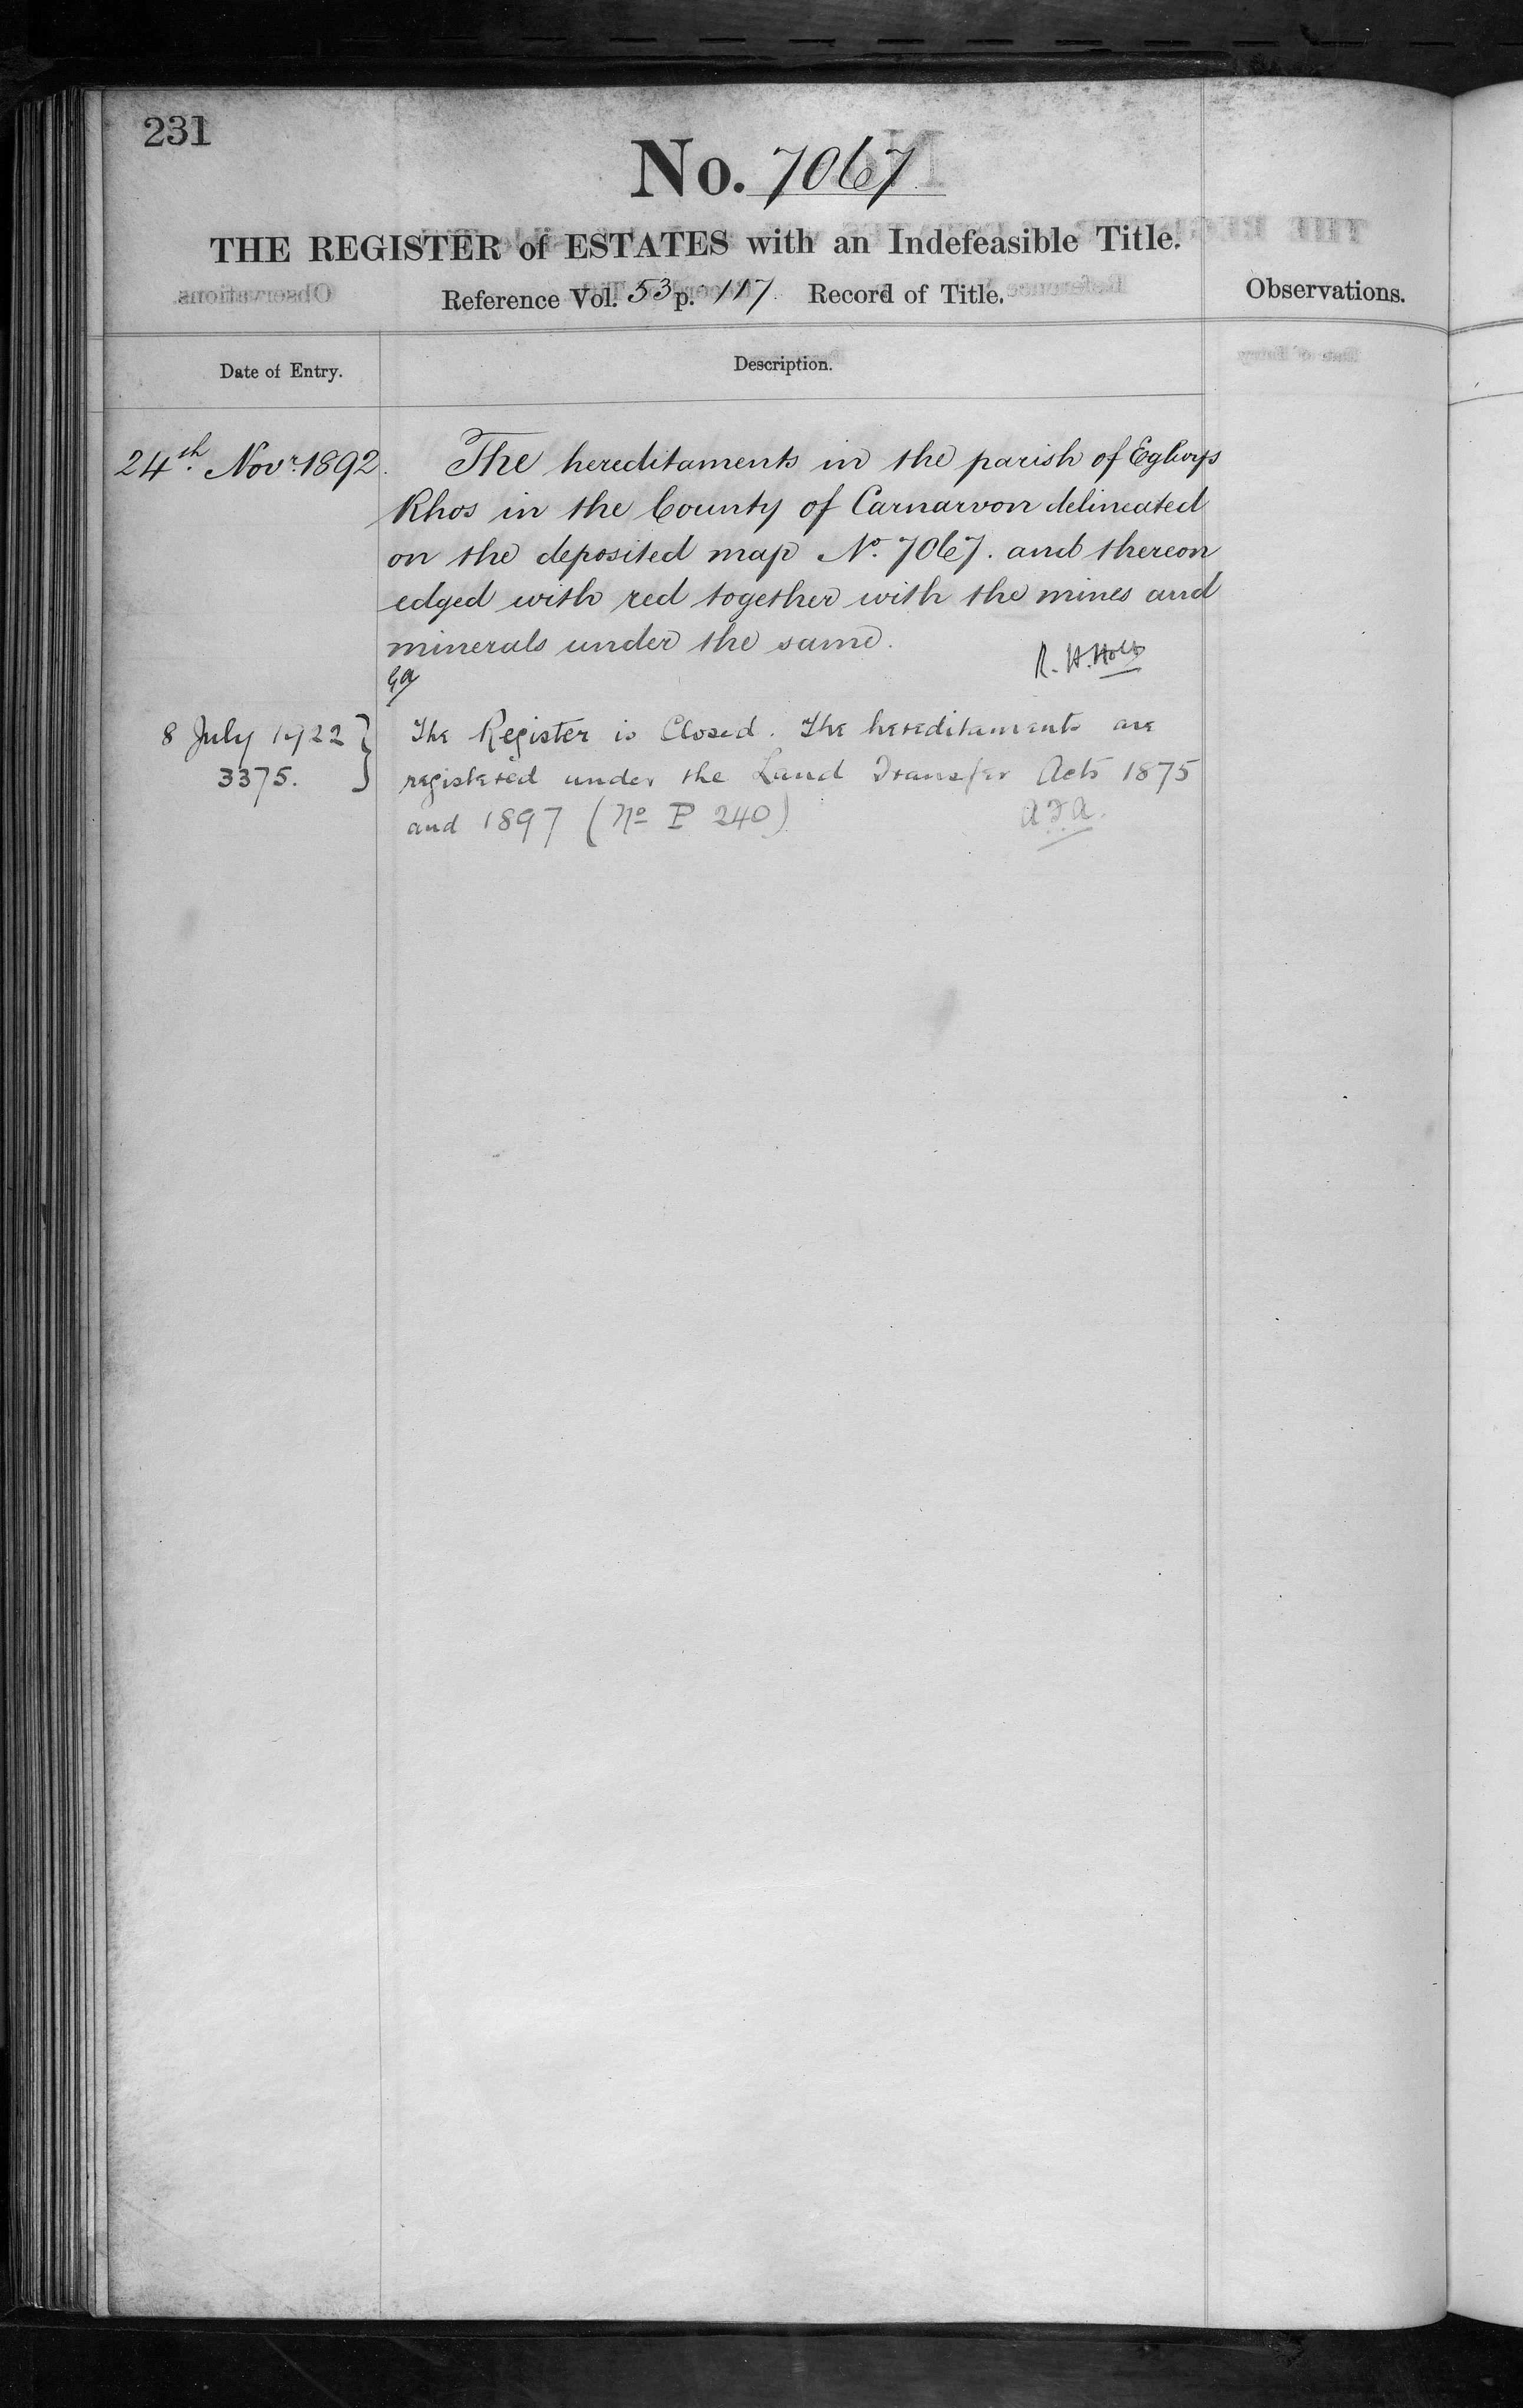 231
No. 7067
THE REGISTER of ESTATES with an Indefeasible Title.
Reference Vol. 53 p. 117 Record of Title.
Observations.
Date of Entry.
Description.
24th Novr. 1892.
The hereditaments in the parish of Eglwys
Rhos in the County of Carnarvon delineated
on the deposited map No. 7067. and thereon
edged with red together with the mines and
minerals under the same.
R. H. Holt
8 July 1922
3375.
The Register is Closed. The hereditaments are
registered under the Land Transfer Acts 1875
and 1897 (No P 240)